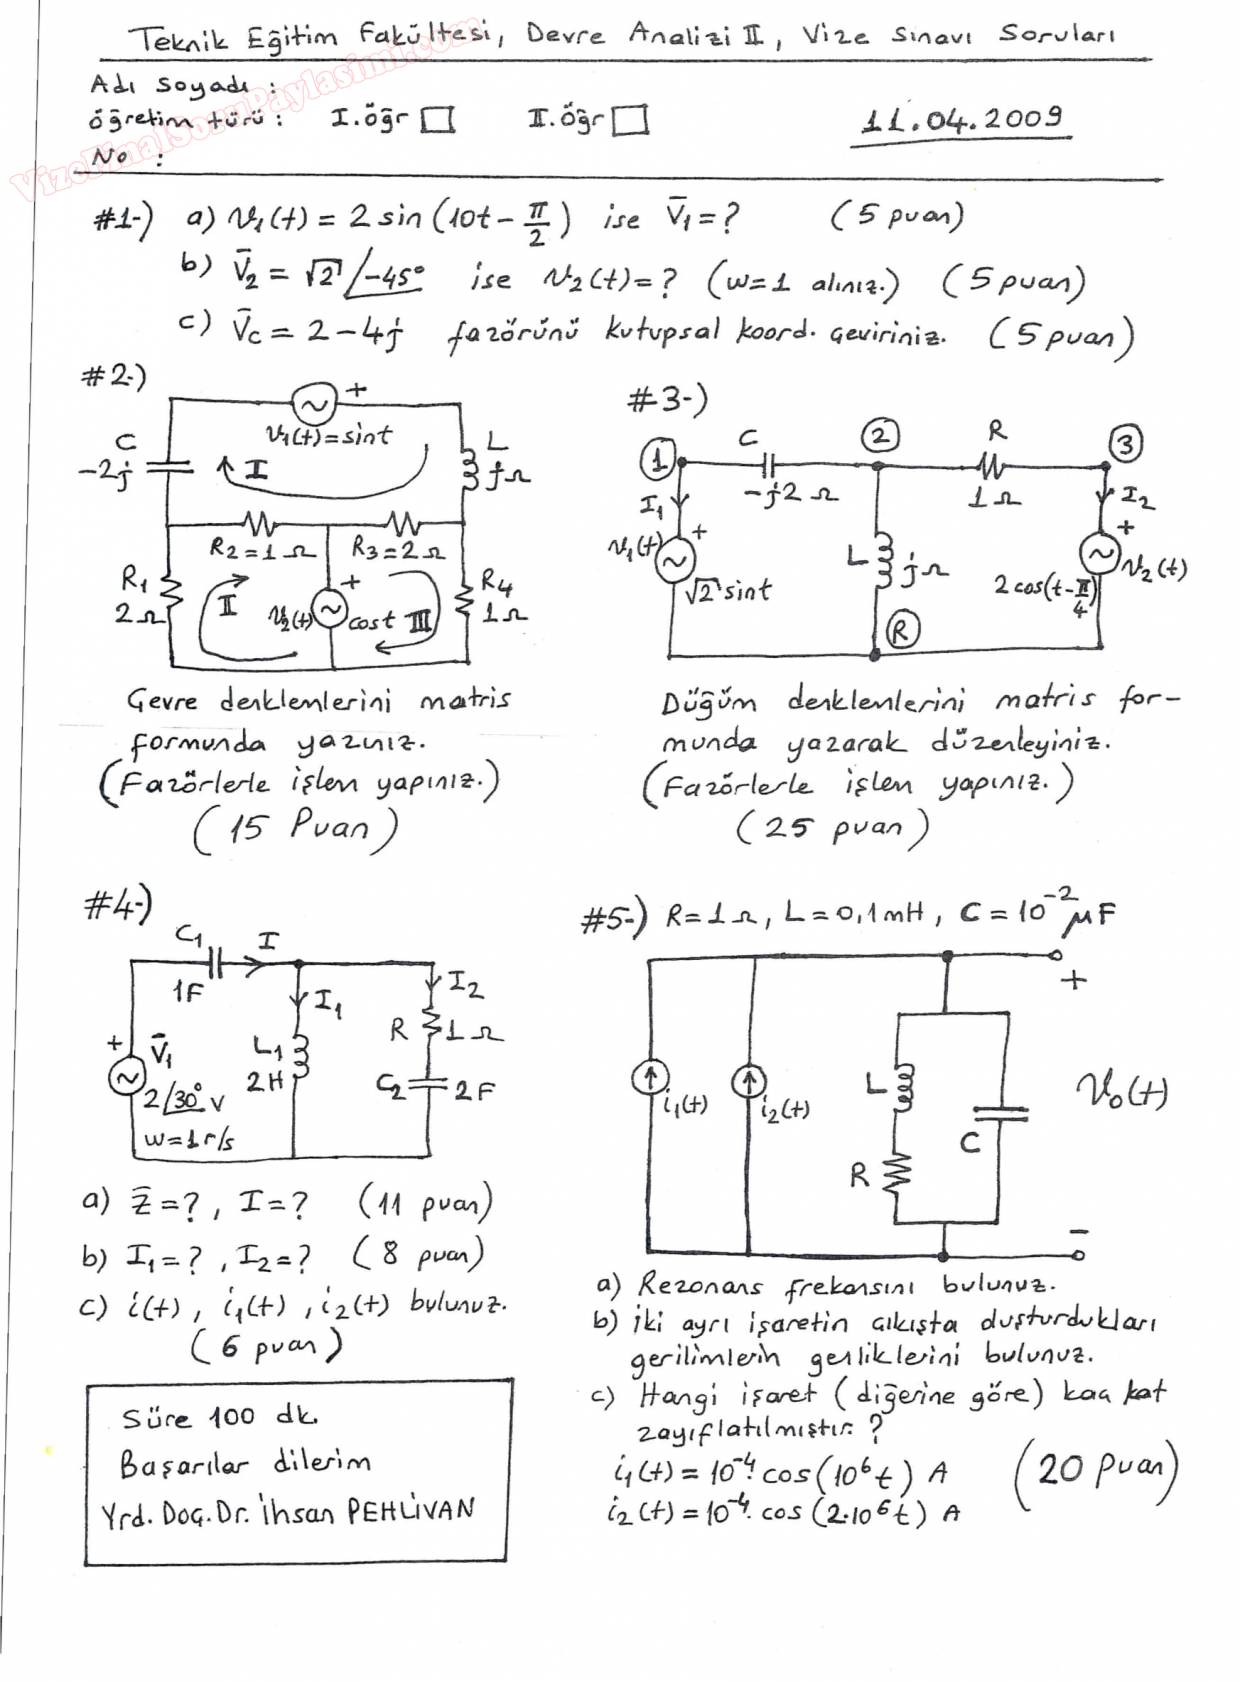 Teknik Eğitim Fakültesi, Devre Analizi II, Vize Sınavı Soruları
VizeFinalSoruPaylasimi.com
Adı Soyadı :
öğretim türü : I.öğr □ II.öğr □ 11.04.2009
No :
#1-) a) v₁(t) = 2 sin(10t - π/2) ise V̄₁ = ? (5 puan)
b) V̄₂ = √2 /-45° ise v₂(t) = ? (w=1 alınız.) (5 puan)
c) V̄c = 2 - 4j fazörünü kutupsal koord. çeviriniz. (5 puan)
#2-)
+
v₁(t) = sint
C
-2j
I
L
jΩ
R₂=1Ω R₃=2Ω
R₁
2Ω
II
+
v₂(t) cost III
R₄
1Ω
Çevre denklemlerini matris
formunda yazınız.
(Fazörlerle işlem yapınız.)
(15 Puan)
#3-)
1 C 2 R 3
-j2 Ω 1Ω
I₁ I₂
v₁(t) +
√2 sint
L jΩ
+
v₂(t)
2cos(t-π/4)
R
Düğüm denklemlerini matris for-
munda yazarak düzenleyiniz.
(Fazörlerle işlem yapınız.)
(25 puan)
#4-)
C₁ I
1F
I₁ I₂
R 1Ω
+ V̄₁
2/30° V
w=1 r/s
L₁
2H
C₂ 2F
a) Z̄=?, I=? (11 puan)
b) I₁=?, I₂=? (8 puan)
c) i(t), i₁(t), i₂(t) bulunuz.
(6 puan)
Süre 100 dk.
Başarılar dilerim
Yrd. Doç. Dr. İhsan PEHLİVAN
#5-) R=1Ω, L=0,1mH, C=10⁻² μF
+
i₁(t) i₂(t) L v₀(t)
C
R
-
a) Rezonans frekansını bulunuz.
b) İki ayrı işaretin çıkışta duşturdukları
gerilimlerin genliklerini bulunuz.
c) Hangi işaret (diğerine göre) kaç kat
zayıflatılmıştır. ?
i₁(t) = 10⁻⁴. cos(10⁶t) A (20 puan)
i₂(t) = 10⁻⁴. cos(2.10⁶t) A